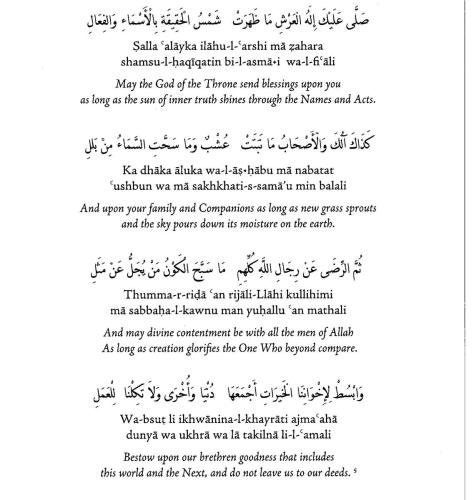 صَلَّى عَلَيْكَ إِلَهُ الْعَرْشِ مَا ظَهَرَتْ شَمْسُ الْحَقِيقَةِ بِالْأَسْمَاءِ وَالْفِعَالِ
Ṣalla ʿalāyka ilāhu-l-ʿarshi mā ẓahara
shamsu-l-ḥaqīqatin bi-l-asmā•i wa-l-fiʿāli
May the God of the Throne send blessings upon you
as long as the sun of inner truth shines through the Names and Acts.
كَذَاكَ آلُكَ وَالْأَصْحَابُ مَا نَبَتَتْ عُشْبٌ وَمَا سَحَّتِ السَّمَاءُ مِنْ بَلَلِ
Ka dhāka āluka wa-l-āṣ•ḥābu mā nabatat
ʿushbun wa mā sakhkhati-s-samā'u min balali
And upon your family and Companions as long as new grass sprouts
and the sky pours down its moisture on the earth.
ثُمَّ الرِّضَى عَنْ رِجَالِ اللَّهِ كُلِّهِمِ مَا سَبَّحَ الْكَوْنُ مَنْ يُجَلُّ عَنْ مَثَلِ
Thumma-r-riḍā ʿan rijāli-Llāhi kullihimi
mā sabbaḥa-l-kawnu man yuḥallu ʿan mathali
And may divine contentment be with all the men of Allah
As long as creation glorifies the One Who beyond compare.
وَابْسُطْ لِإِخْوَانِنَا الْخَيْرَاتِ أَجْمَعَهَا دُنْيَا وَأُخْرَى وَلَا تَكِلْنَا لِلْعَمَلِ
Wa-bsuṭ li ikhwānina-l-khayrāti ajmaʿahā
dunyā wa ukhrā wa lā takilnā li-l-ʿamali
Bestow upon our brethren goodness that includes
this world and the Next, and do not leave us to our deeds. ⁵